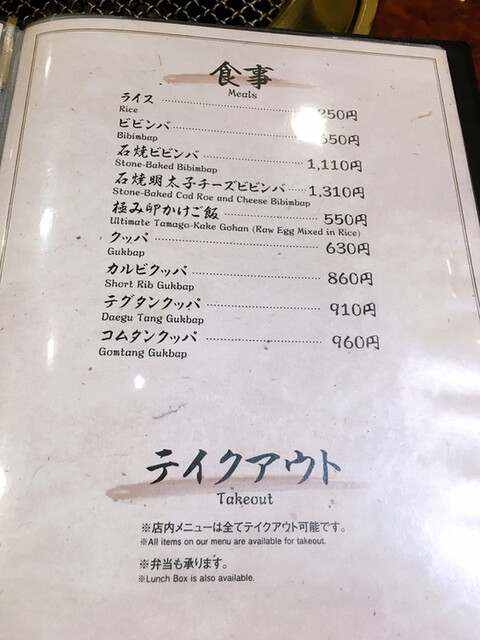 食事
Meals
ライス 250円
Rice
ビビンバ 650円
Bibimbap
石焼ビビンバ 1,110円
Stone-Baked Bibimbap
石焼明太子チーズビビンバ 1,310円
Stone-Baked Cod Roe and Cheese Bibimbap
極み卵かけご飯 550円
Ultimate Tamago-Kake Gohan (Raw Egg Mixed in Rice)
クッパ 630円
Gukbap
カルビクッパ 860円
Short Rib Gukbap
テグタンクッパ 910円
Daegu Tang Gukbap
コムタンクッパ 960円
Gomtang Gukbap
テイクアウト
Takeout
※店内メニューは全てテイクアウト可能です。
※All items on our menu are available for takeout.
※弁当も承ります。
※Lunch Box is also available.